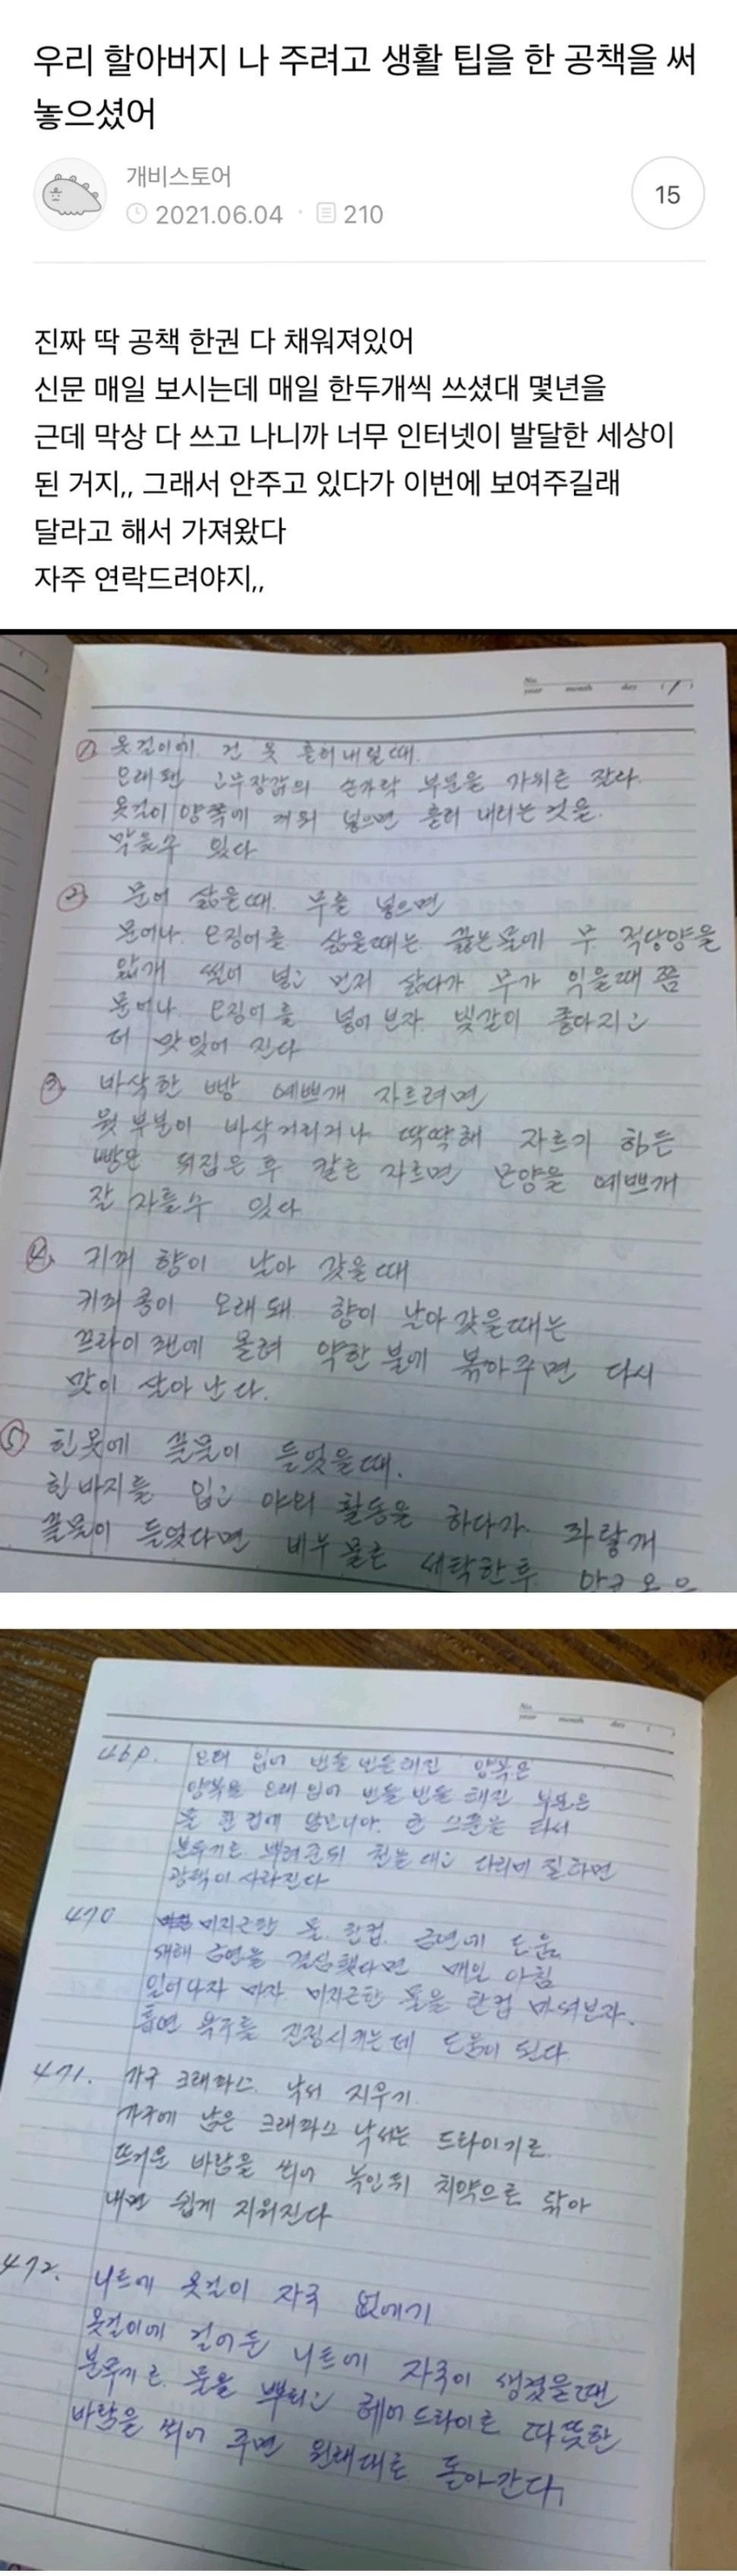 우리 할아버지 나 주려고 생활 팁을 한 공책을 써
놓으셨어
개비스토어
2021.06.04 · 210
15
진짜 딱 공책 한권 다 채워져있어
신문 매일 보시는데 매일 한두개씩 쓰셨대 몇년을
근데 막상 다 쓰고 나니까 너무 인터넷이 발달한 세상이
된 거지,, 그래서 안주고 있다가 이번에 보여주길래
달라고 해서 가져왔다
자주 연락드려야지,,
No.
year month day ( / )
① 옷걸이에 건 옷 흘러내릴때.
오래된 고무장갑의 손가락 부분을 가위로 잘라
옷걸이 양쪽에 끼워 넣으면 흘러 내리는 것을
막을수 있다
② 문어 삶을때 무를 넣으면
문어나 오징어를 삶을때는 끓는물에 무 적당양을
얇개 썰어 넣고 먼저 삶다가 무가 익을때 쯤
문어나 오징어를 넣어보자 빛갈이 좋아지고
더 맛있어 진다
③ 바삭한 빵 예쁘개 자르려면
윗부분이 바삭거리거나 딱딱해 자르기 힘든
빵은 뒤집은 후 칼로 자르면 모양을 예쁘개
잘 자를수 있다
④ 커피 향이 날아 갔을때
커피콩이 오래돼 향이 날아갔을때는
프라이팬에 올려 약한 불에 볶아주면 다시
맛이 살아난다.
⑤ 흰옷에 풀물이 들었을때.
흰바지를 입고 야외 활동을 하다가 파랗개
풀물이 들었다면 비누물로 세탁한후
No.
year month day ( )
469. 오래 입어 번들번들해진 양복은
양복을 오래입어 번들번들해진 부분은
물 한컵에 암모니아 한 스푼을 타서
분무기로 뿌려준뒤 천을 대고 다리미질하면
광택이 사라진다
470 미지근한 물 한컵 금연에 도움
새해 금연을 결심했다면 매일 아침
일어나자 마자 미지근한 물을 한컵 마셔보자.
흡연 욕구를 진정시키는데 도움이 된다
471. 가구 크래파스 낙서 지우기
가구에 남은 크래파스 낙서는 드라이기로
뜨거운 바람을 쐬어 녹인뒤 치약으로 닦아
내면 쉽게 지워진다
472. 니트에 옷걸이 자국 없애기
옷걸이에 걸어둔 니트에 자국이 생겼을땐
분무기로 물을 뿌리고 헤어드라이로 따뜻한
바람을 쐬어 주면 원래대로 돌아간다.